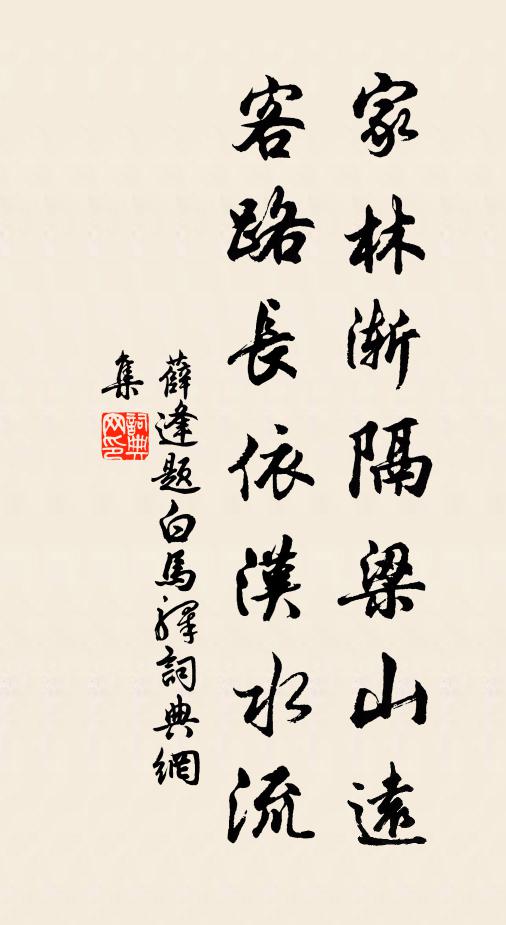 家林漸隔梁山遠
客路長依漢水流
薛逢题白馬驛詞典網
集
詞典網印